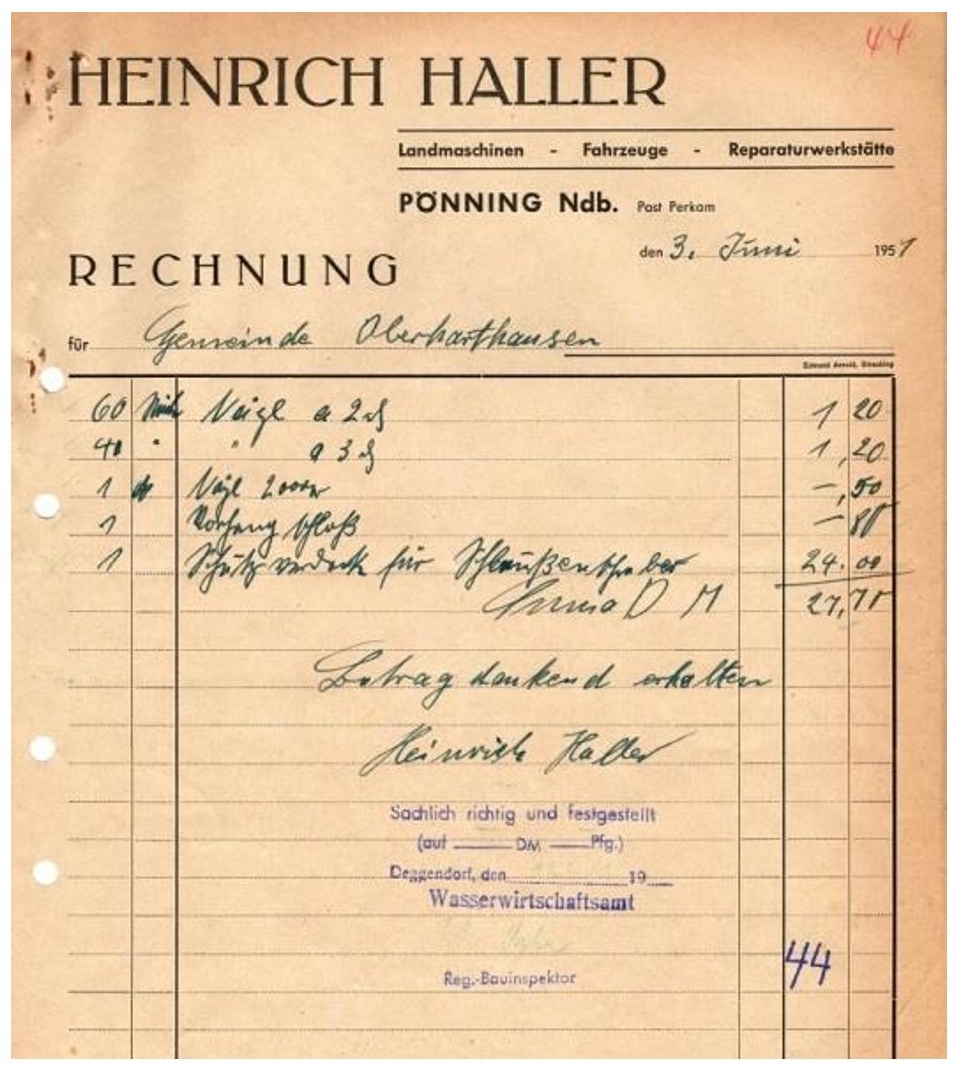 44
HEINRICH HALLER
Landmaschinen - Fahrzeuge - Reparaturwerkstätte
PÖNNING Ndb. Post Perkam
den 3. Juni 1951
RECHNUNG
für Gemeinde Oberharthausen
Edmund Arnold, Straubing
60 Nägl a 2 ₰ 1 20
40 " " a 3 ₰ 1,20
1 Nägl -,50
1 Vorhangschloß - 80
1 Schutzverdeck für 24.00
Summa D M 27,70
Betrag dankend erhalten
Heinrich Haller
Sachlich richtig und festgestellt
(auf DM Pfg.)
Deggendorf, den 19
Wasserwirtschaftsamt
44
Reg.-Bauinspektor